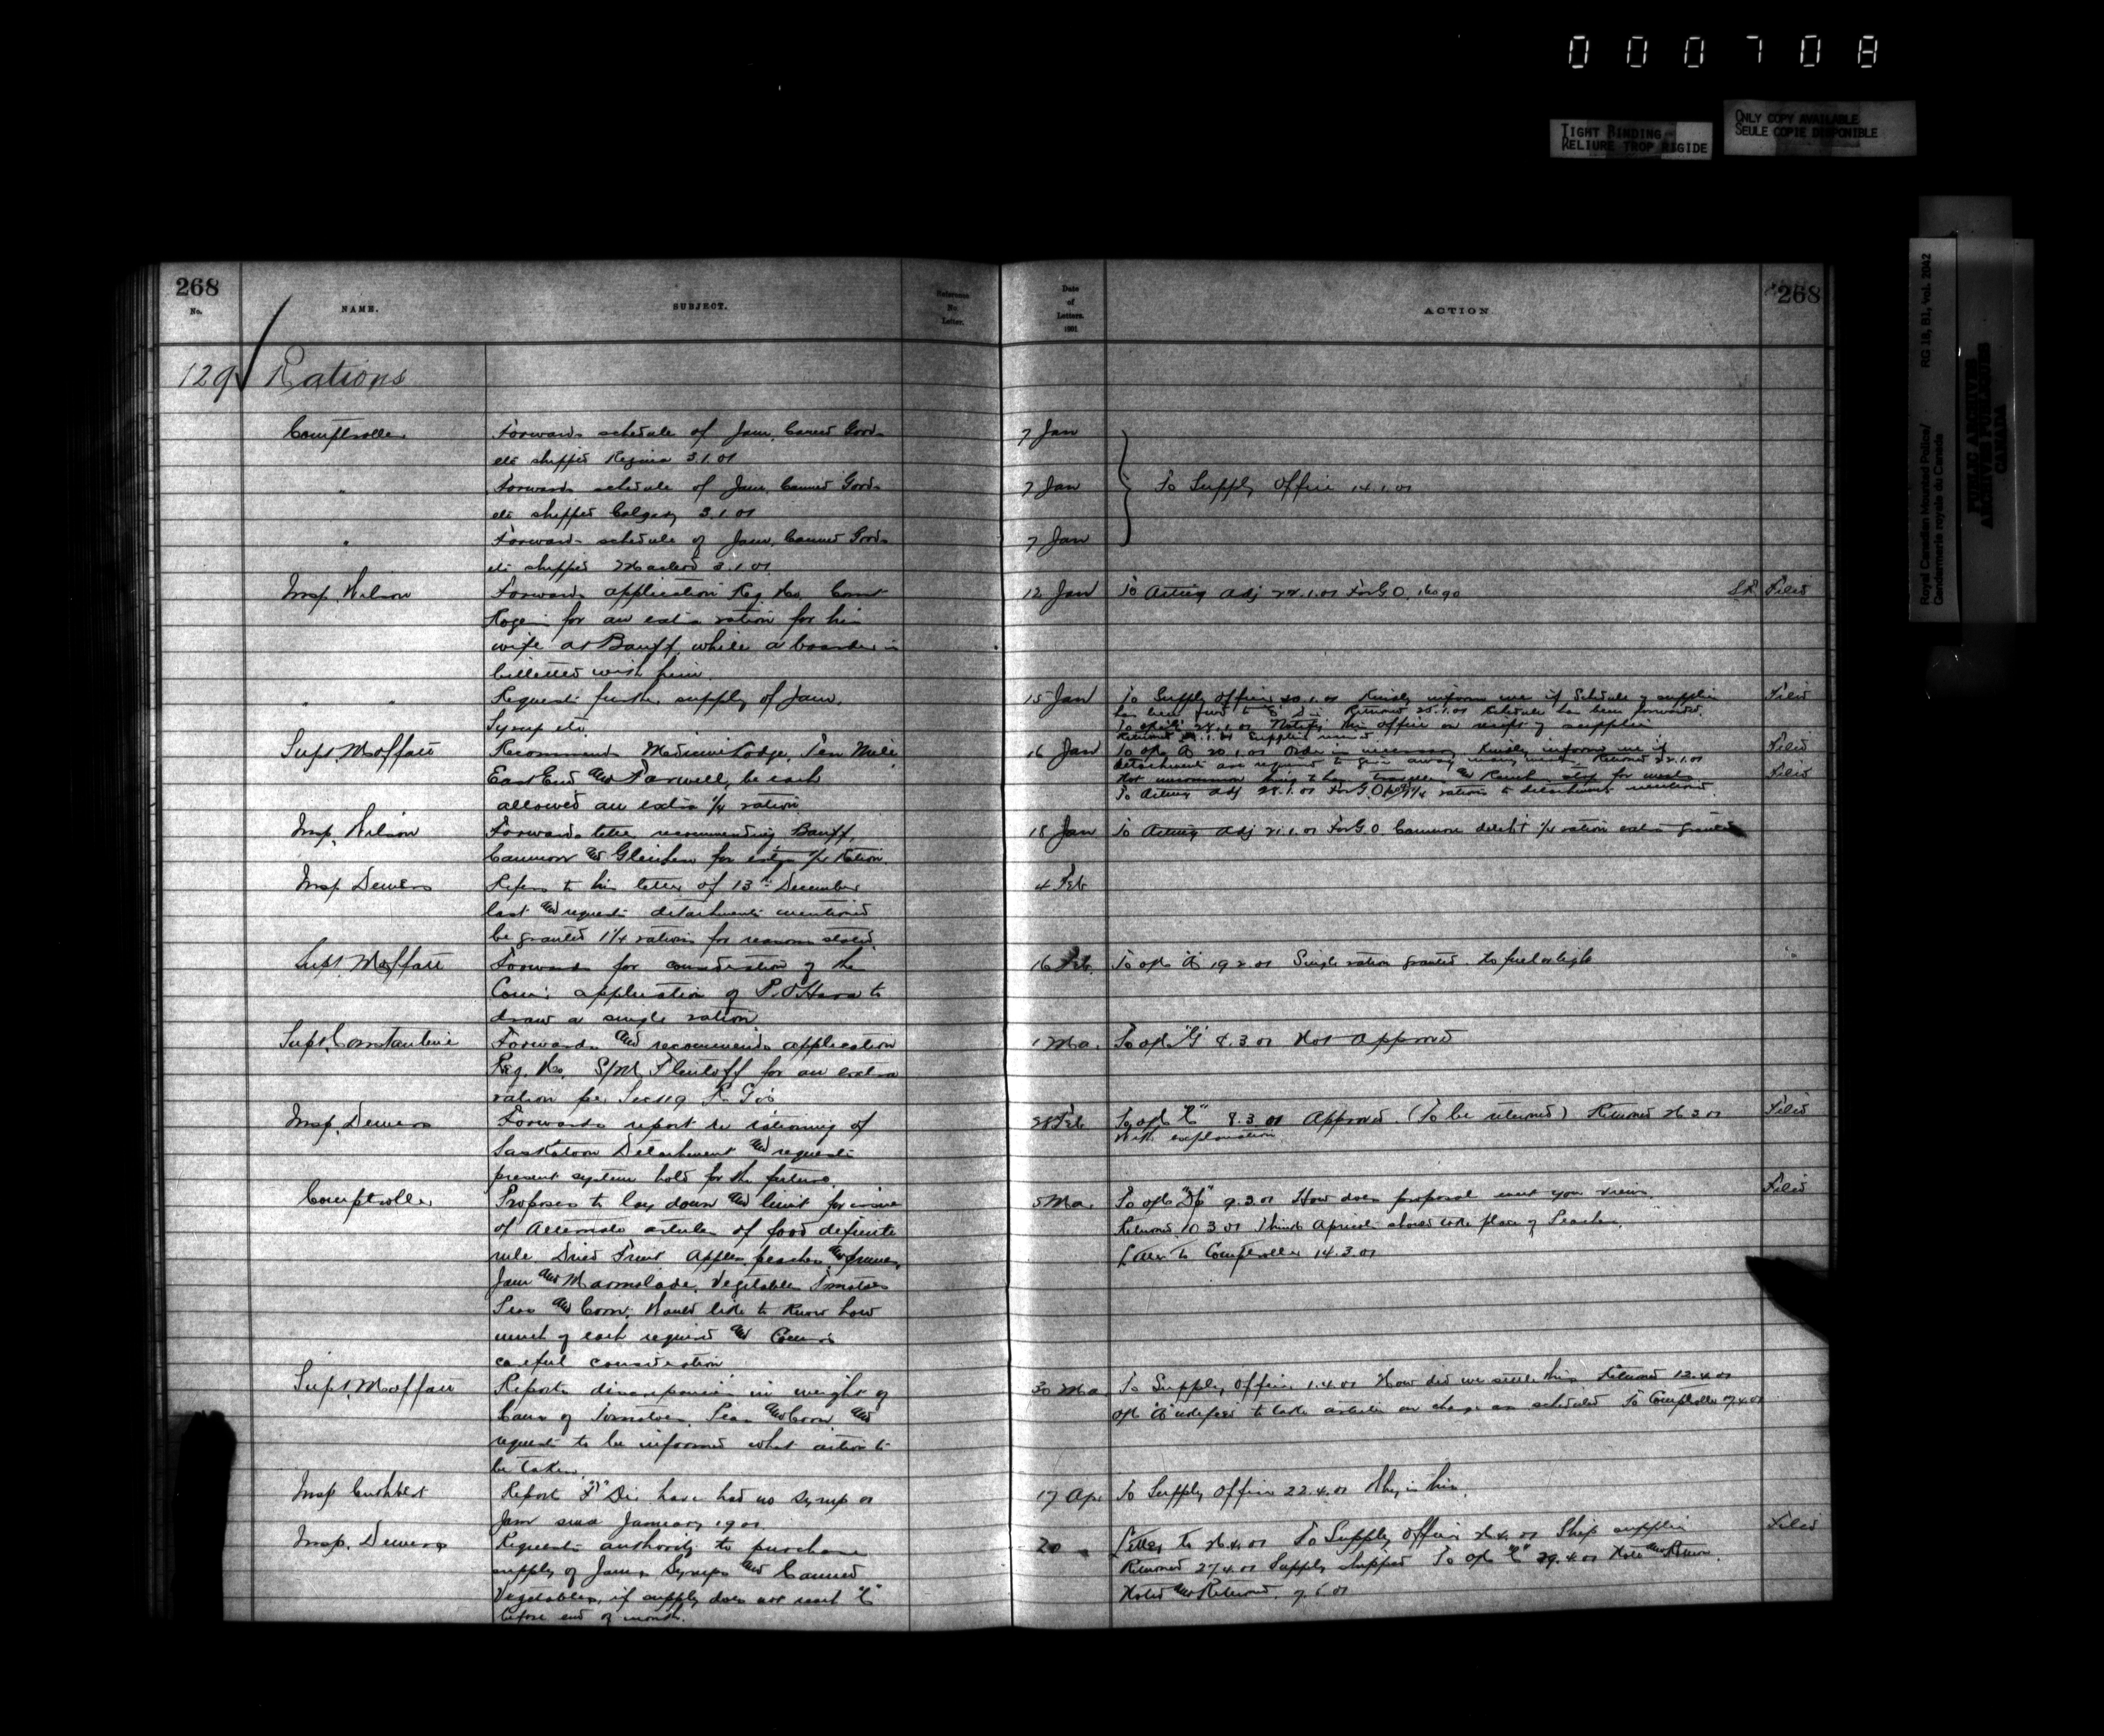 000708
TIGHT BINDING
RELIURE TROP RIGIDE
ONLY COPY AVAILABLE
SEULE COPIE DISPONIBLE
Royal Canadian Mounted Police/
Gendarmerie royale du Canada
RG 18, B1, vol. 2042
PUBLIC ARCHIVES
ARCHIVES PUBLIQUES
CANADA
268
No.
NAME.
SUBJECT.
Reference No Letter.
Date of Letters. 1901
ACTION
268
129 Rations
Comptroller Forwards schedule of Jam, Canned Goods 7 Jan
etc shipped Regina 3.1.01
" Forwards schedule of Jam, Canned Goods 7 Jan To Supply Officer 14.1.01
etc shipped Calgary 3.1.01
" Forwards schedule of Jam, Canned Goods 7 Jan
etc shipped Macleod 3.1.01
Insp. Wilson Forwards application Reg No. Const 12 Jan To Acting Adj 24.1.01 For G.O. Filed
for an extra ration for his
wife at Banff while a boarder is
billetted with him.
" " Requests further supply of Jam, 15 Jan To Supply Officer 20.1.01 Kindly inform me if Schedule of supplies Filed
Syrup etc.
has been forwarded.
Notify this office on receipt of supplies
Supt. Moffatt Recommends Medicine Lodge, Ten Mile, 16 Jan To o/c "A" 20.1.01 Kindly inform me if Filed
East End and Farwell, be each
detachments are required to give away many meals. Returned 22.1.01
allowed an extra 1/4 ration
Filed
To Acting Adj 28.1.01 For G.O. 1/4 rations to detachments mentioned.
Insp. Wilson Forwards letter recommending Banff, 18 Jan To Acting Adj 21.1.01 For G.O. Canmore detch't 1/4 ration extra granted
Canmore and Gleichen for extra 1/4 Ration.
Insp. Demers Refers to his letter of 13th December 4 Feb
last and requests detachments mentioned
be granted 1 1/4 rations for reasons stated.
Supt. Moffatt Forwards for consideration of the 16 Feb. To o/c "A" 19.2.01 Single ration granted. No fuel or light
Com'r application of P. O'Hara to
draw a single ration.
Supt. Constantine Forwards and recommends application 1 Mar. To o/c "G" 8.3.01 Not Approved
Reg. No. S/M Flintoff for an extra
ration per Sec 119
Insp. Demers Forwards report re rationing of 28 Feb To o/c "C" 8.3.01 Approved. (To be returned) Returned Filed
with explanation
Saskatoon Detachment and requests
present system hold for the future.
Comptroller Proposes to lay down and limit for issue 5 Mar. To o/c "Dp" 9.3.01 How does proposal meet your views. Filed
of Alternate articles of food definite
Returned 10.3.01 Thinks Apricots should take place of Peaches.
rule Dried Fruit Apples, peaches, and prunes,
Letter to Comptroller 14.3.01
Jam and Marmalade, Vegetables Tomatoes
Peas and Corn. Would like to know how
much of each required and Com'rs
careful consideration
Supt. Moffatt Reports discrepancies in weight of 30 Mar To Supply Officer 1.4.01 How did we settle this. Returned 12.4.01
Cans of Tomatoes, Peas and Corn and
to take articles on charge as scheduled To Comptroller 17.4.01
requests to be informed what action to
be taken.
Insp Cuthbert Report "F" Div have had no syrup or 17 Apr. To Supply Officer 22.4.01 Why is this.
Jam since January 1901
Insp. Demers Requests authority to purchase 20 " To Supply Officer Ship supplies Filed
supply of Jams, Syrups and Canned
Returned 27.4.01 Supply shipped To o/c "C" 29.4.01 Note and Return.
Vegetables, if supply does not reach "C"
Noted and Returned.
before end of month.